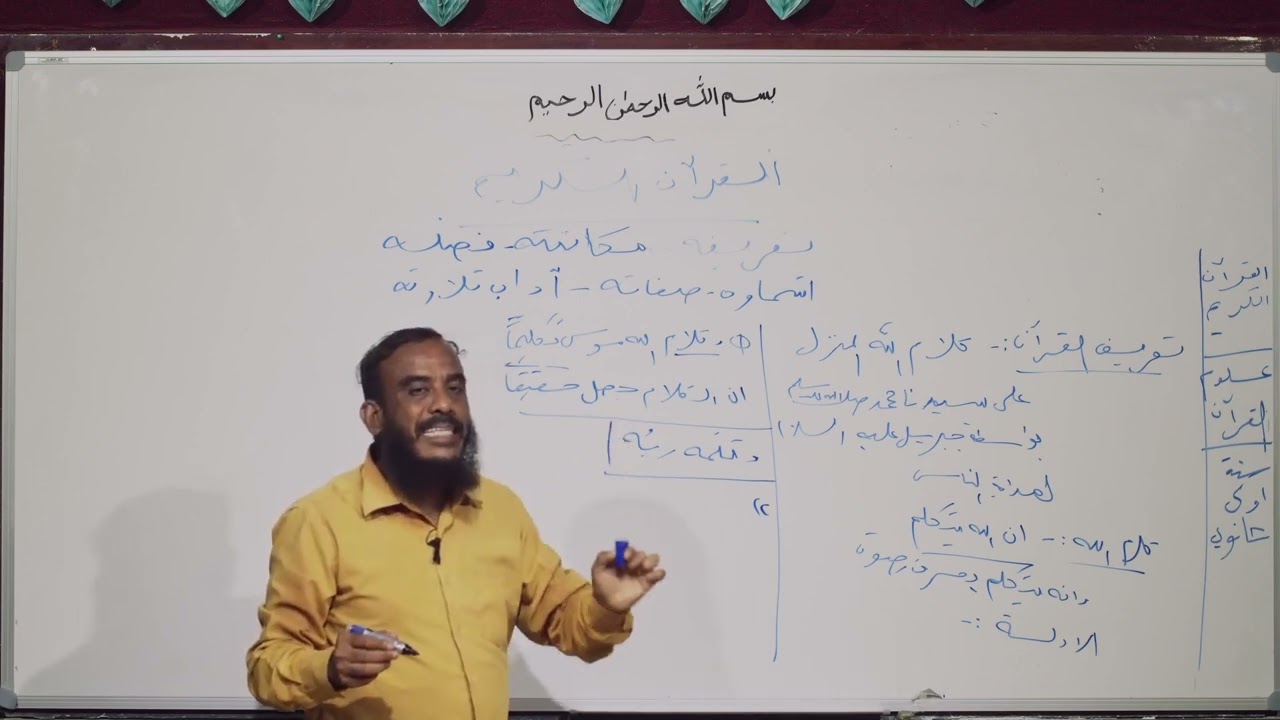 بسم الله الرحمن الرحيم
القرآن الكريم
تعريفه - مكانته - فضله
اسماوه - صفاته - آداب تلاوته
القرآن
الكريم
علوم
القرآن
سنة
اولى
ثانوي
تعريف القرآن :- كلام الله المنزل
على سيدنا محمد صلى الله عليه وسلم
بواسطة جبريل عليه السلام
لهداية الناس
كلام الله :- ان الله يتكلم
وانه يتكلم بحرف وصوت
الادلة :-
الله موسى تكليماً
ان الكلام حقيقياً
وكلمه ربه
(٢